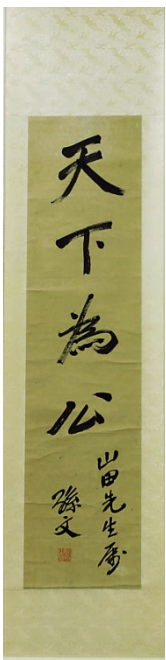 天下為公
山田先生屬
孫文